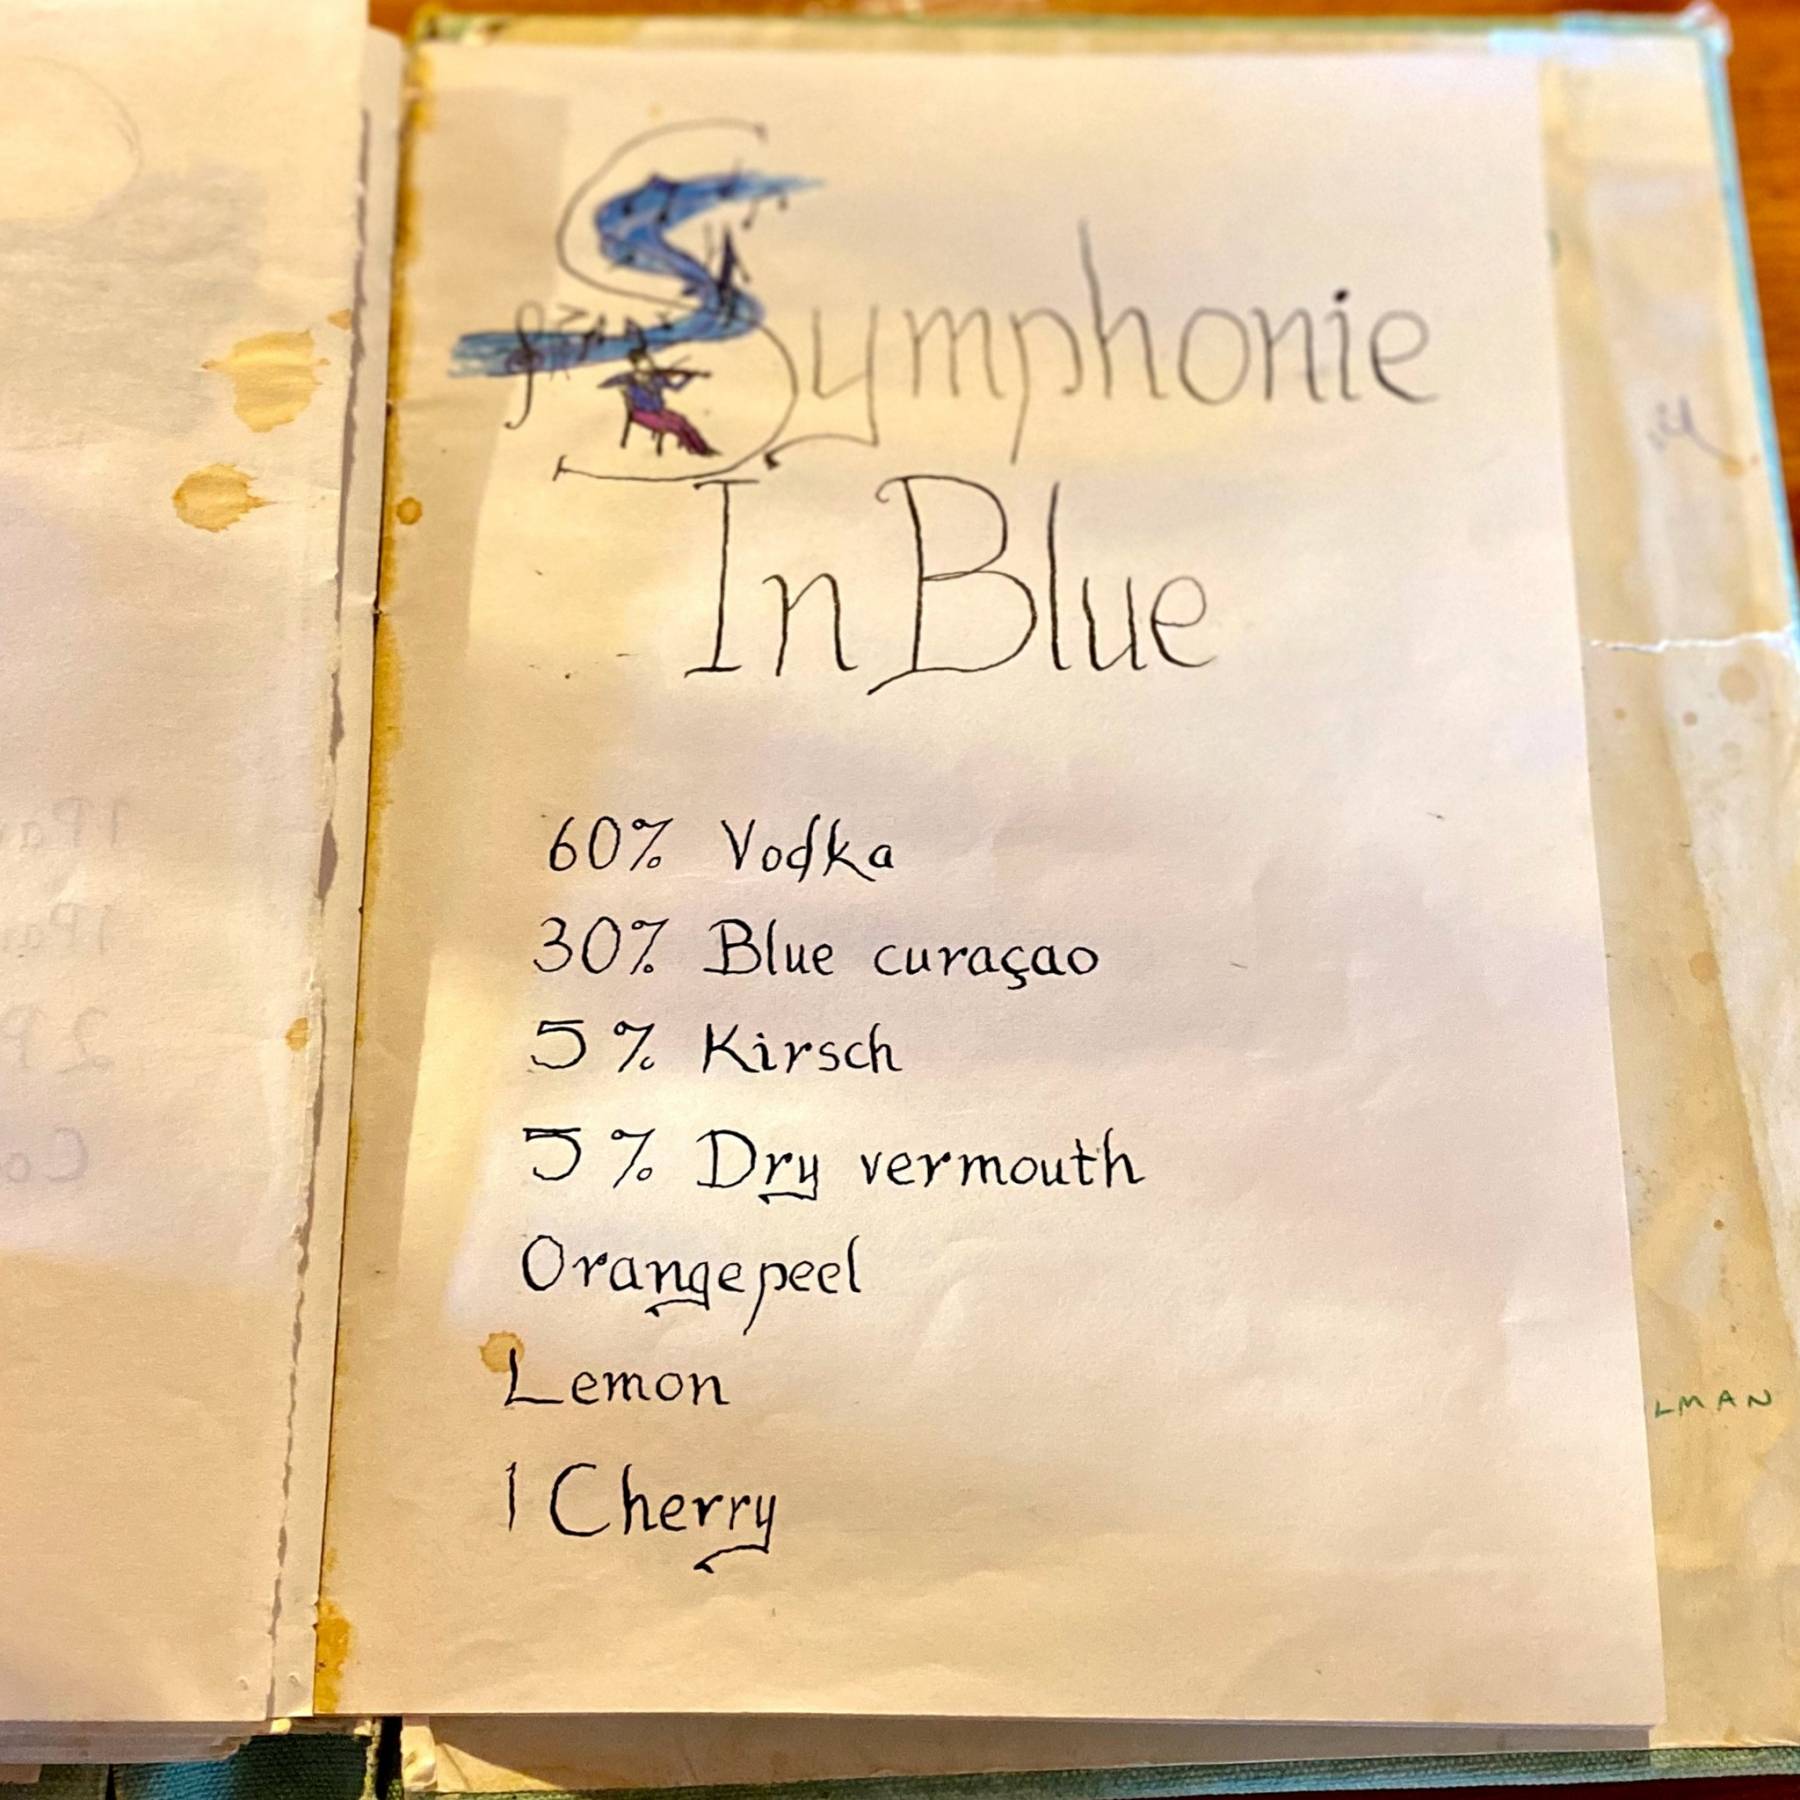 Symphonie
In Blue
60% Vodka
30% Blue curaçao
5% Kirsch
5% Dry vermouth
Orangepeel
Lemon
1 Cherry
LMAN